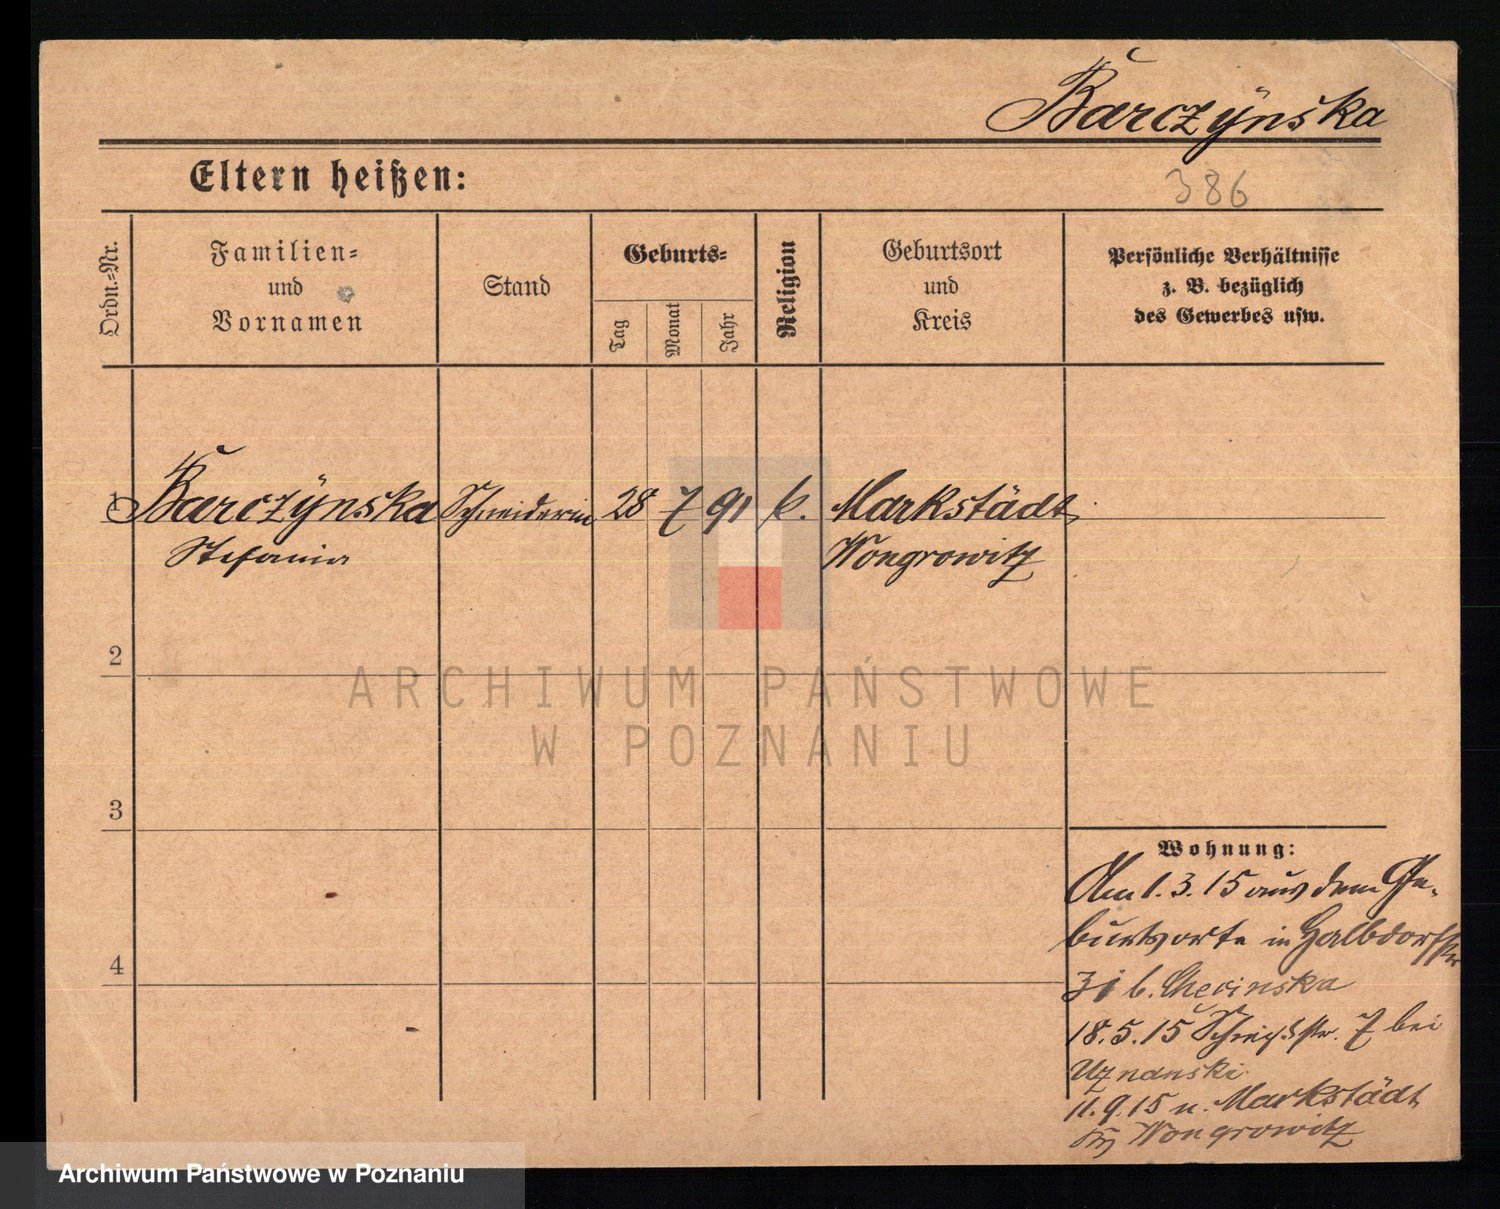 Barczÿnska
Eltern heißen:
386
Ordn.-Nr.
Familien=
und
Vornamen
Stand
Geburts=
Tag
Monat
Jahr
Religion
Geburtsort
und
Kreis
Persönliche Verhältnisse
z. B. bezüglich
des Gewerbes usw.
1 Barczÿnska Schneiderin 28 7 91 k. Markstädt
Stefania Wongrowitz
2
ARCHIWUM PAŃSTWOWE
W POZNANIU
3
Wohnung:
Am 1.3.15 aus dem Ge-
burtsorte in Halbdorfstr
31 b. Checinska
18.5.15 str. 7 bei
Uznanski
11.9.15 n. Markstädt
Wongrowitz
4
Archiwum Państwowe w Poznaniu